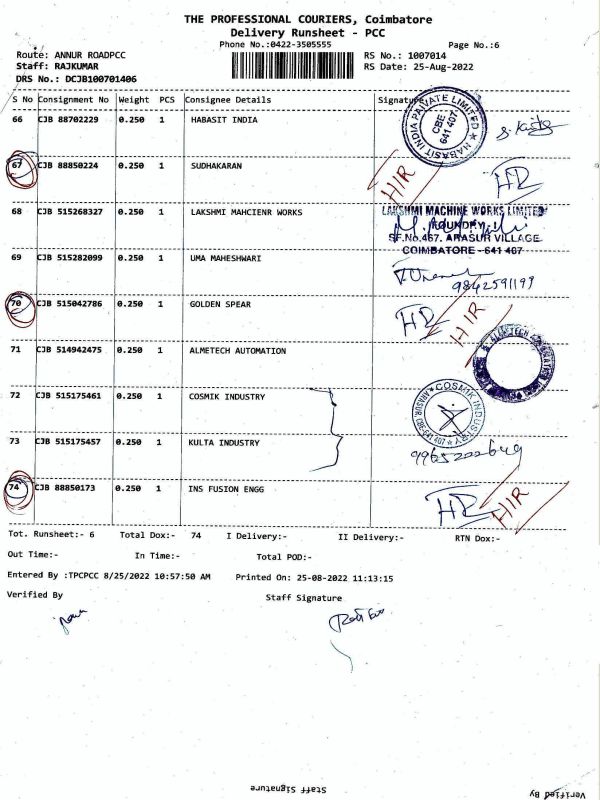 THE PROFESSIONAL COURIERS, Coimbatore
Delivery Runsheet - PCC
Phone No.:0422-3505555
Page No.:6
Route: ANNUR ROADPCC
RS No.: 1007014
Staff: RAJKUMAR
RS Date: 25-Aug-2022
DRS No.: DCJB100701406
S No Consignment No Weight PCS Consignee Details Signature
66 CJB 88702229 0.250 1 HABASIT INDIA
HABASIT INDIA PRIVATE LIMITED
CBE
641 407
67 CJB 88850224 0.250 1 SUDHAKARAN
HIR
68 CJB 515268327 0.250 1 LAKSHMI MAHCIENR WORKS
LAKSHMI MACHINE WORKS LIMITED
FOUNDRY - I
SF.No.467. ARASUR VILLAGE
COIMBATORE - 641 407
69 CJB 515282099 0.250 1 UMA MAHESHWARI
9842591199
70 CJB 515042786 0.250 1 GOLDEN SPEAR
HIR
71 CJB 514942475 0.250 1 ALMETECH AUTOMATION
72 CJB 515175461 0.250 1 COSMIK INDUSTRY
COSMIK INDUSTRY
ARASUR, CBE-641 407
73 CJB 515175457 0.250 1 KULTA INDUSTRY
9965200649
74 CJB 88850173 0.250 1 INS FUSION ENGG
HIR
Tot. Runsheet:- 6 Total Dox:- 74 I Delivery:- II Delivery:- RTN Dox:-
Out Time:- In Time:- Total POD:-
Entered By :TPCPCC 8/25/2022 10:57:50 AM Printed On: 25-08-2022 11:13:15
Verified By Staff Signature
Staff Signature
Verified By